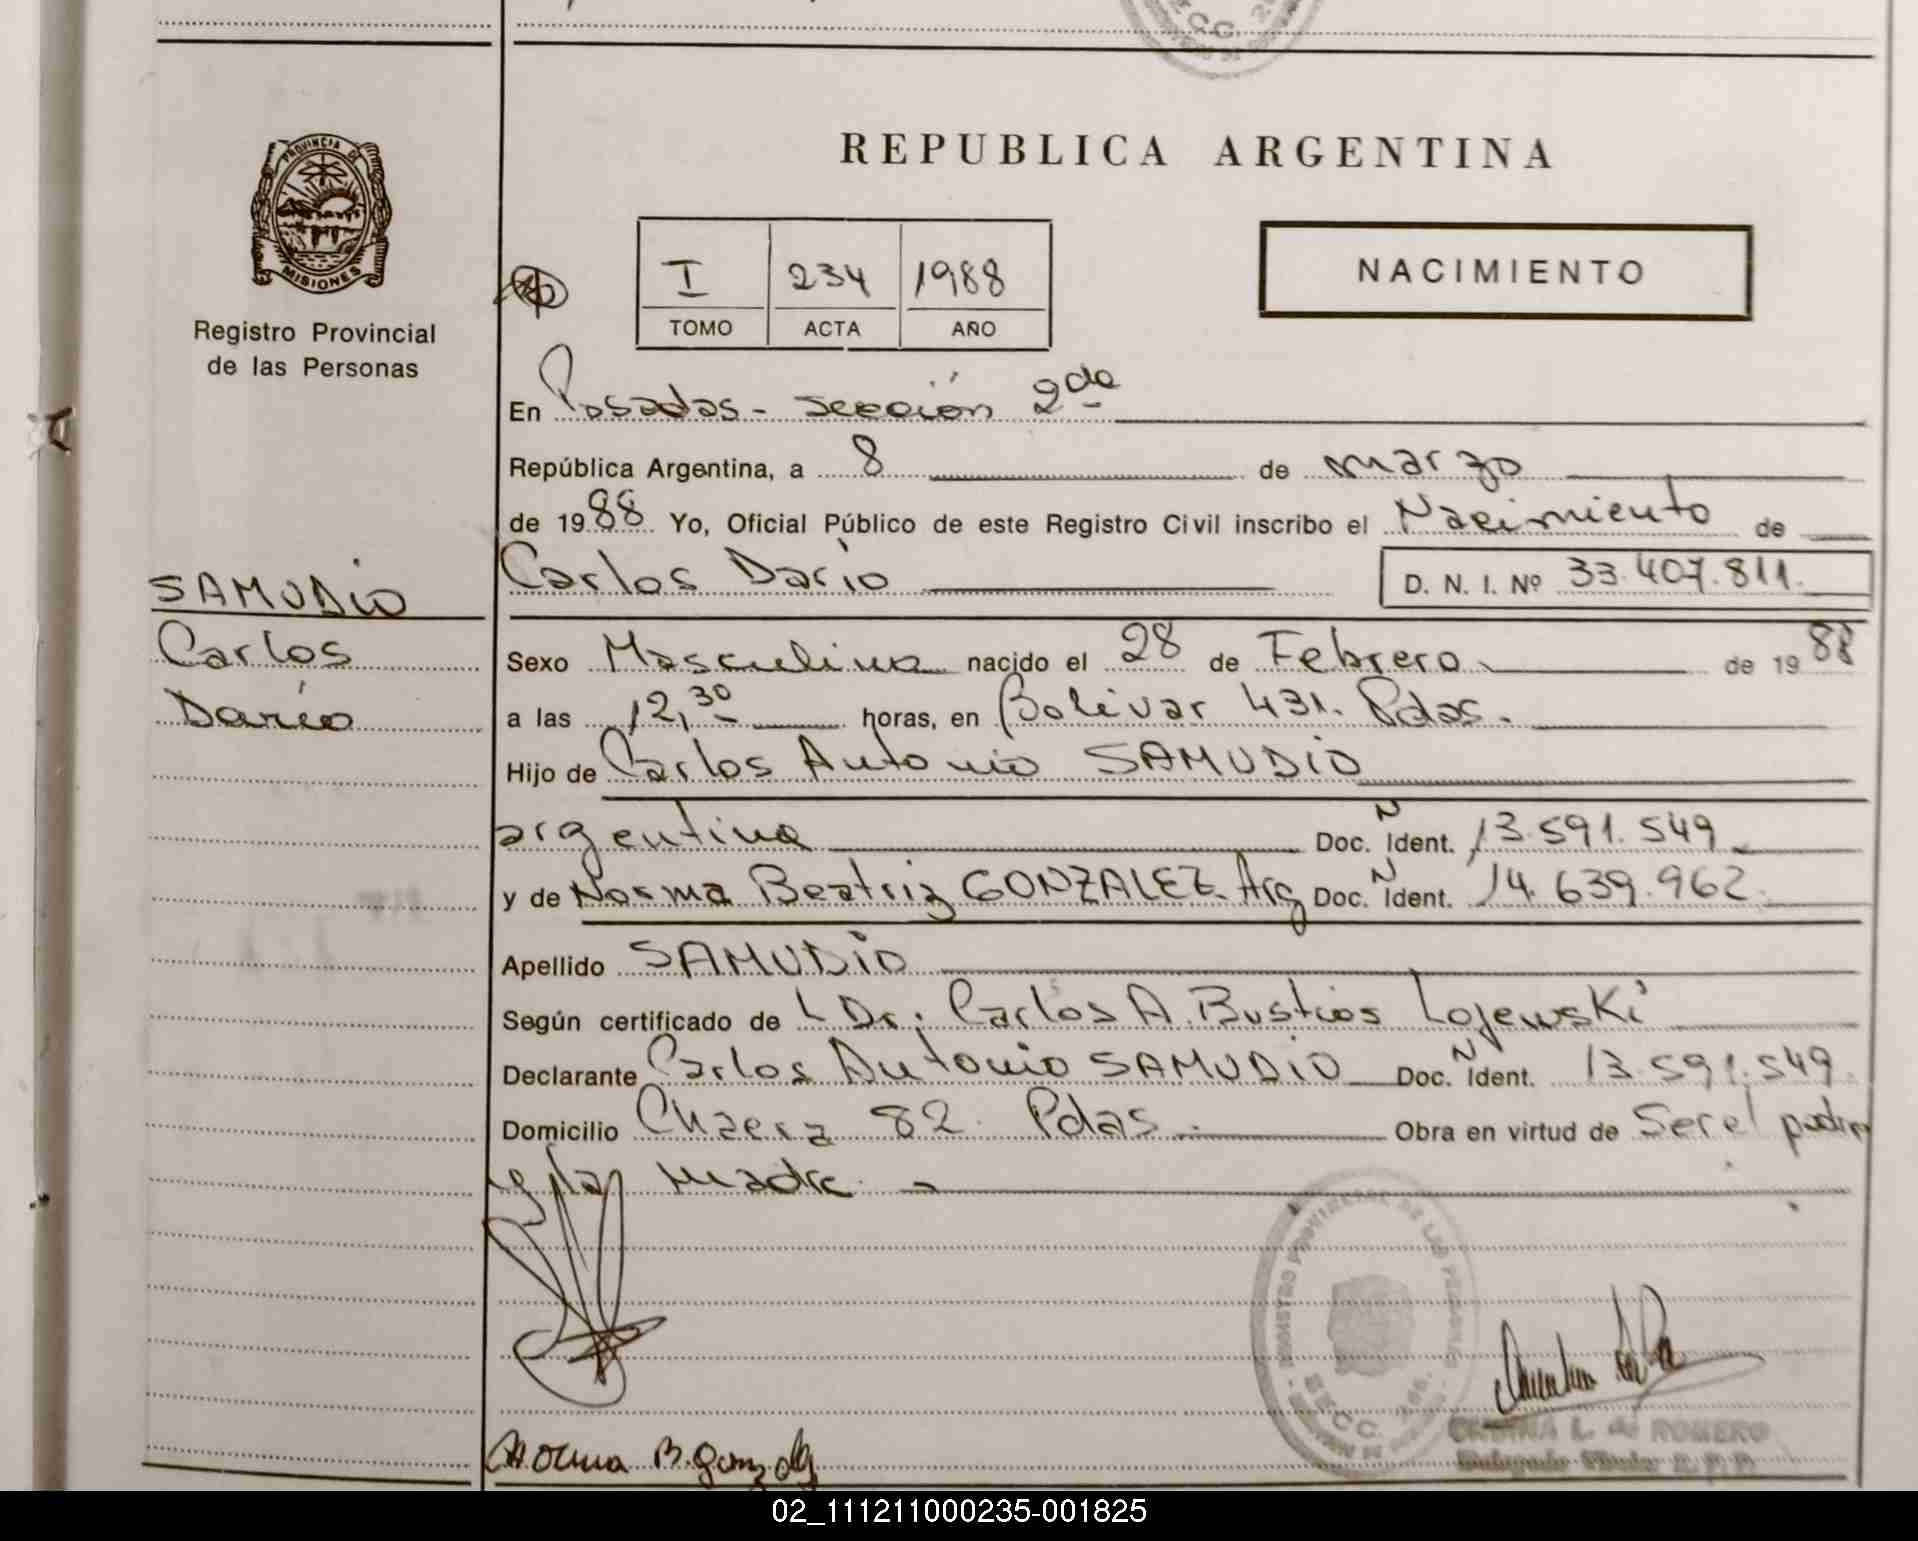 REPUBLICA ARGENTINA
PROVINCIA DE
MISIONES
Registro Provincial
de las Personas
I 234 1988
TOMO ACTA AÑO
NACIMIENTO
En Posadas - sección 2da
República Argentina, a 8 de marzo
de 1988 Yo, Oficial Público de este Registro Civil inscribo el Nacimiento de
Carlos Dario D. N. I. Nº 33.407.811.
SAMUDIO
Carlos
Darío
Sexo Masculino nacido el 28 de Febrero de 1988
a las 12,30 horas, en Bolivar 431. Pdas.
Hijo de Carlos Antonio SAMUDIO
argentina Doc. N Ident. 13.591.549
y de Norma Beatriz GONZALEZ Arg Doc. N Ident. 14.639.962.
Apellido SAMUDIO
Según certificado de L Dr. Carlos A. Bustios Lojewski
Declarante Carlos Antonio SAMUDIO Doc. N Ident. 13.591.549.
Domicilio 82. Pdas. Obra en virtud de Ser el padre
y la madre.
REGISTRO PROVINCIAL DE LAS PERSONAS
SECC. 2da.
L. de ROMERO
Norma B. Gonzalez
02_111211000235-001825